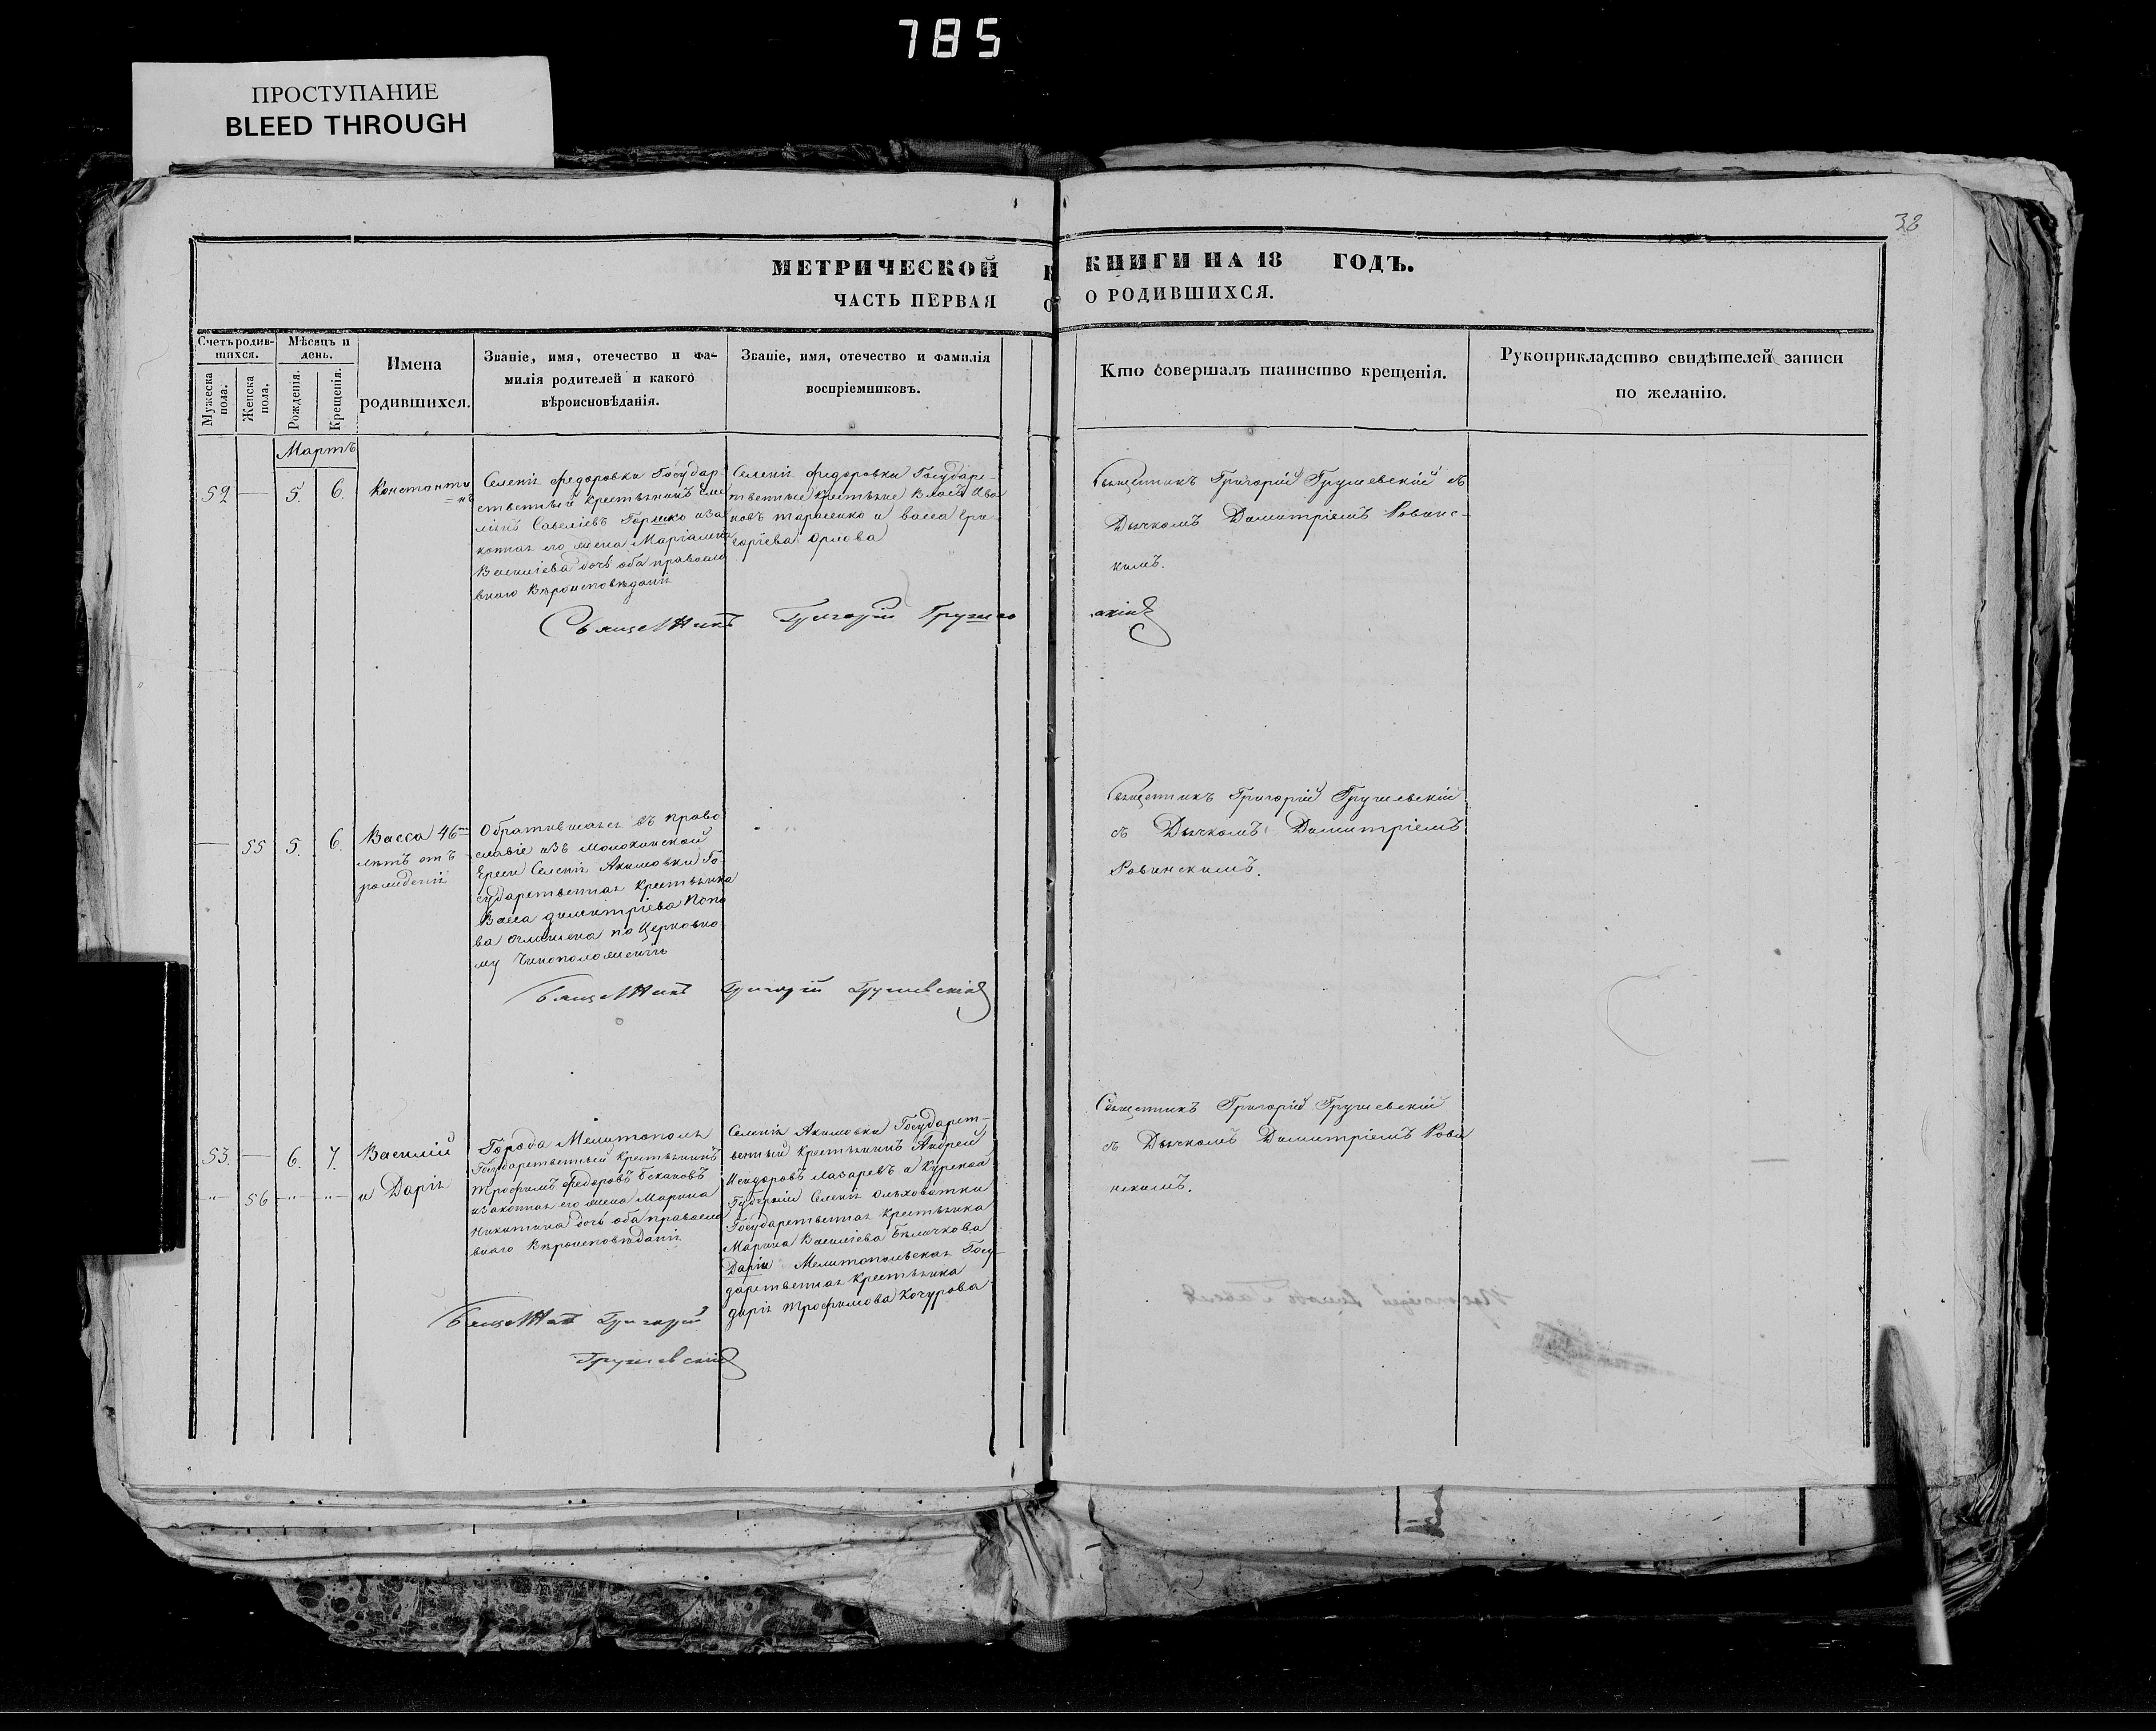 785
ПРОСТУПАНИЕ
BLEED THROUGH
38
МЕТРИЧЕСКОЙ
КНИГИ НА 18 ГОДЪ.
ЧАСТЬ ПЕРВАЯ
О РОДИВШИХСЯ.
Счетъ родив-
шихся.
Мѣсяцъ и
день.
Мужеска
пола.
Женска
пола.
Рожденія.
Крещенія.
Имена
родившихся.
Званіе, имя, отечество и фа-
милія родителей и какого
вѣроисповѣданія.
Званіе, имя, отечество и фамилія
воспріемниковъ.
Кто совершалъ таинство крещенія.
Рукоприкладство свидѣтелей записи
по желанію.
Мартъ
52 — 5. 6.
Константи
=нъ
Селенія Федоровки Государ
ственный крестьянинъ
Савеліевъ Горшко иза
конная его жена
Василіева дочь оба правосла
внаго Вѣроисповѣданія
Селенія Федоровки Государс-
твенные крестьяне Власъ Ива
новъ Тарасенко и Васса Гри-
горіева Орлова
Священникъ Григорій Грушевскій съ
Дьячкомъ Димитріемъ Ровинс-
кимъ.
Священникъ Григорій Грушев
скій
— 55 5. 6.
Васса 46ти
лѣтъ отъ
рожденія
Обратившаяся въ право
славіе изъ Молоканской
Ереси Селенія Акимовки Го-
сударственная крестьянка
Васса Димитріева Попо
ва по Церковно
му Чиноположенію
Священникъ Григорій Грушевскій
съ Дьячкомъ Димитріемъ
Ровинскимъ.
Священникъ Григорій Грушевскій
53. — 6. 7.
Василій
" 56 " "
и Дарія
Города Мелитополя
Государственный Крестьянинъ
Трофимъ Федоровъ
изаконная его жена Марина
Никитина дочь оба правосла
внаго Вѣроисповѣданія
Селенія Акимовки Государст-
венный крестьянинъ Андрей
Исидоровъ Лазаревъ и Курской
Губерніи Селенія Ольховатки
Государственная крестьянка
Марина Василіева Бѣличкова
Даріи Мелитопольская Госу-
дарственная крестьянка
Дарія Трофимова Кочурова
Священникъ Григорій Грушевскій
съ Дьячкомъ Димитріемъ Рови
нскимъ.
Священникъ Григорій
Грушевскій